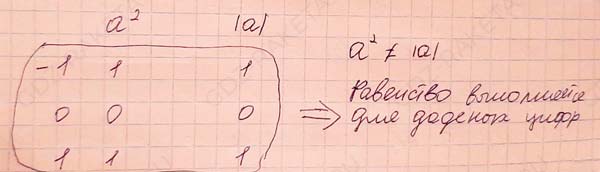 a² |a|
-1 1 1
0 0 0
1 1 1
⇒
a² ≠ |a|
Равенство выполняется
для даденох цифр